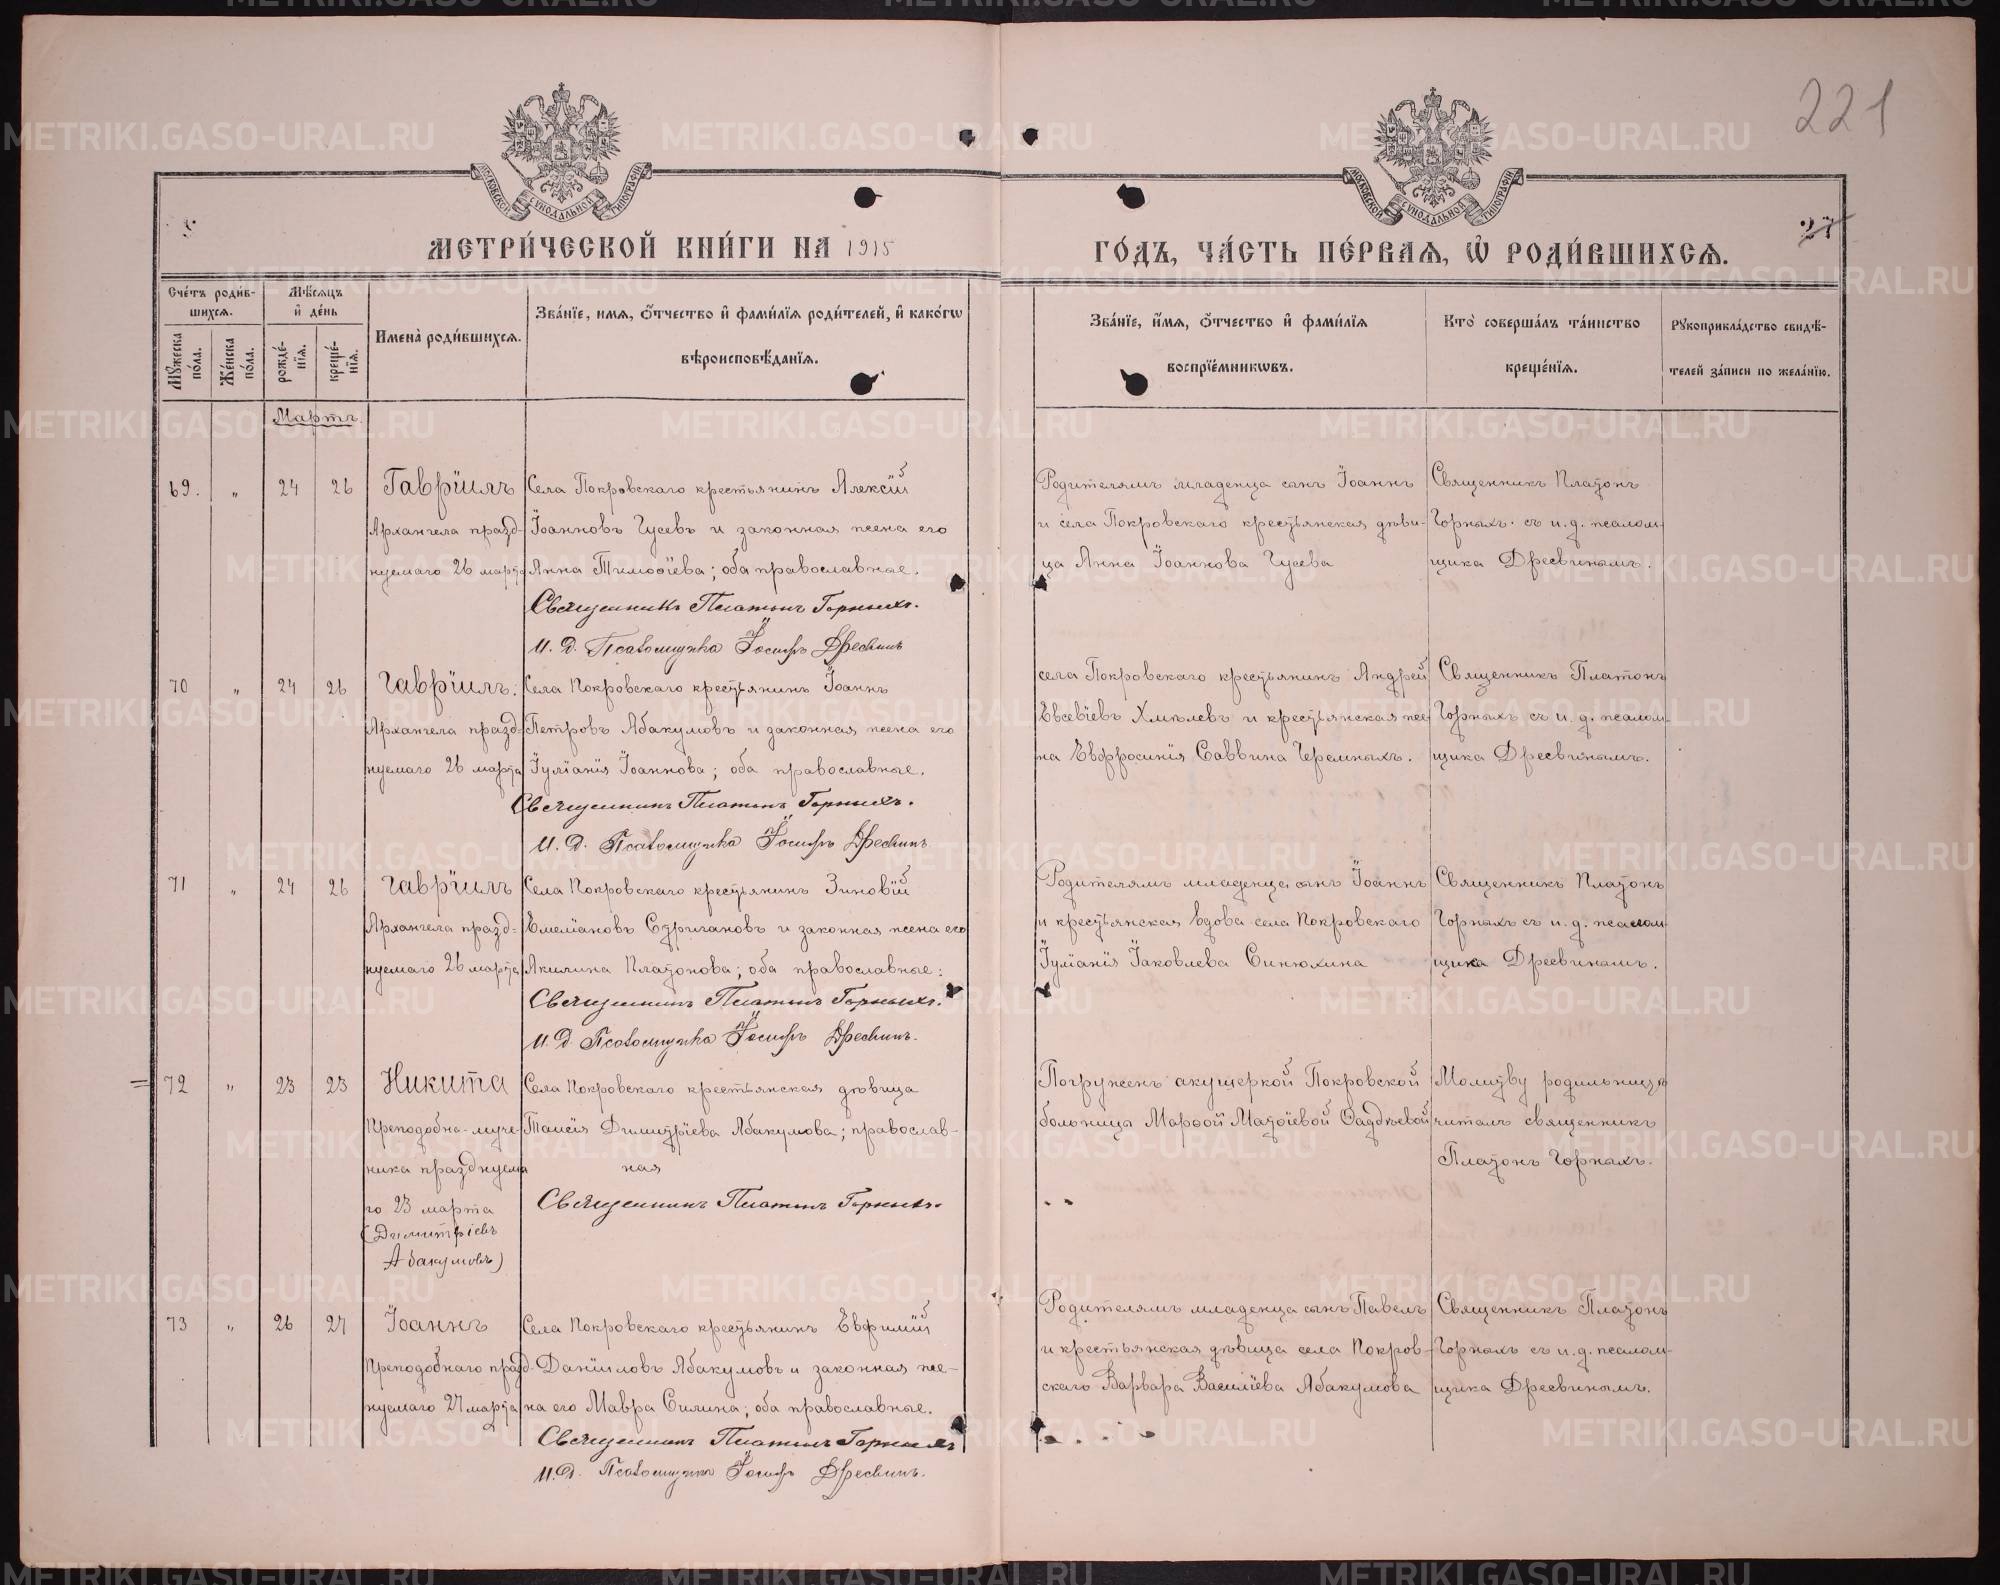 221
МЕТРИ́ЧЕСКОЙ КНИ́ГИ НА 1915 ГО́ДЪ, ЧА́СТЬ ПЕ́РВАЯ, Ѡ҆ РОДИ́ВШИХСѦ.
27
МОСКОВСКОЙ СѴНОДАЛЬНОЙ ТИПОГРАФІИ
МОСКОВСКОЙ СѴНОДАЛЬНОЙ ТИПОГРАФІИ
Сче́тъ роди́в-
шихсѧ.
Мꙋ́жеска по́ла.
Же́нска по́ла.
Мѣ́сѧцъ
и҆ де́нь
рожде́-
нїѧ.
креще́-
нїѧ.
Имена̀ роди́вшихсѧ.
Зва́нїе, имѧ, ѻ҆́тчество и҆ фами́лїѧ роди́телей, и҆ како́гѡ
вѣроисповѣ́данїѧ.
Зва́нїе, и҆́мѧ, ѻ҆́тчество и҆ фами́лїѧ
воспрїе́мникѡвъ.
Кто̀ соверша́лъ та́инство
креще́нїѧ.
Рꙋкоприкла́дство свидѣ́-
телей за́писи по жела́нїю.
Мартъ.
69. „ 24 26 Гавріилъ
Архангела празд-
нуемаго 26 марта
Села Покровскаго крестьянинъ Алексій
Іоанновъ Гусевъ и законная жена его
Анна Тимоѳіева; оба православные.
Священникъ Платонъ Горныхъ.
И. д. Псаломщика Іосифъ Дресвинъ
Родителямъ младенца сынъ Іоаннъ
и села Покровскаго крестьянская дѣви-
ца Анна Іоаннова Гусева
Священникъ Платонъ
Горныхъ съ и. д. псалом-
щика Дресвинымъ.
70 „ 24 26 Гавріилъ.
Архангела празд-
нуемаго 26 марта
Села Покровскаго крестьянинъ Іоаннъ
Петровъ Абакумовъ и законная жена его
Іуліанія Іоаннова; оба православные.
Священникъ Платонъ Горныхъ.
И. д. Псаломщика Іосифъ Дресвинъ
села Покровскаго крестьянинъ Андрей
Евсевіевъ Хмѣлевъ и крестьянская же-
на Евфросинія Саввина Черемныхъ.
Священникъ Платонъ
Горныхъ съ и. д. псалом-
щика Дресвинымъ.
71 „ 24 26 Гавріилъ
Архангела празд-
нуемаго 26 марта
Села Покровскаго крестьянинъ Зиновій
Емеліановъ Суригановъ и законная жена его
Акилина Платонова; оба православные:
Священникъ Платонъ Горныхъ.
И. д. Псаломщика Іосифъ Дресвинъ.
Родителямъ младенца сынъ Іоаннъ
и крестьянская вдова села Покровскаго
Іуліанія Іаковлева Синюхина
Священникъ Платонъ
Горныхъ съ и. д. псалом-
щика Дресвинымъ.
72 „ 23 23 Никита
Преподобна-муче-
ника празднуема
го 23 марта
(Димитріевъ
Абакумовъ)
Села Покровскаго крестьянская дѣвица
Таисія Димитріева Абакумова; православ-
ная
Священникъ Платонъ Горныхъ.
Погруженъ акушеркой Покровской
больницы Марѳой Матѳіевой Ѳаддѣевой
Молитву родильницѣ
читалъ священникъ
Платонъ Горныхъ.
73 „ 26 27 Іоаннъ
Преподобнаго празд-
нуемаго 27 марта
Села Покровскаго крестьянинъ Евфимій
Даніиловъ Абакумовъ и законная же-
на его Мавра Силина; оба православные.
Священникъ Платонъ Горныхъ
И. д. Псаломщика Іосифъ Дресвинъ.
Родителямъ младенца сынъ Павелъ
и крестьянская дѣвица села Покров-
скаго Варвара Василіева Абакумова
Священникъ Платонъ
Горныхъ съ и. д. псалом-
щика Дресвинымъ.
METRIKI.GASO-URAL.RU